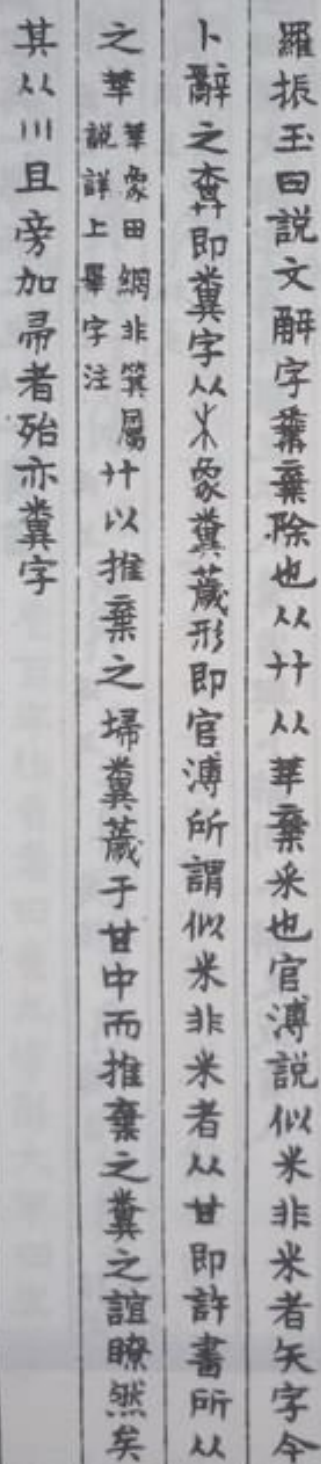 羅振玉曰說文解字糞棄除也从廾从𠦒棄釆也官溥說似米非米者矢字今
卜辭之𡊅即糞字从米象糞薉形即官溥所謂似米非米者从甘即許書所从
之𠦒𠦒象田網非箕屬說詳上畢字注廾以推棄之埽糞薉于甘中而推棄之糞之誼瞭然矣
其从川且旁加帚者殆亦糞字